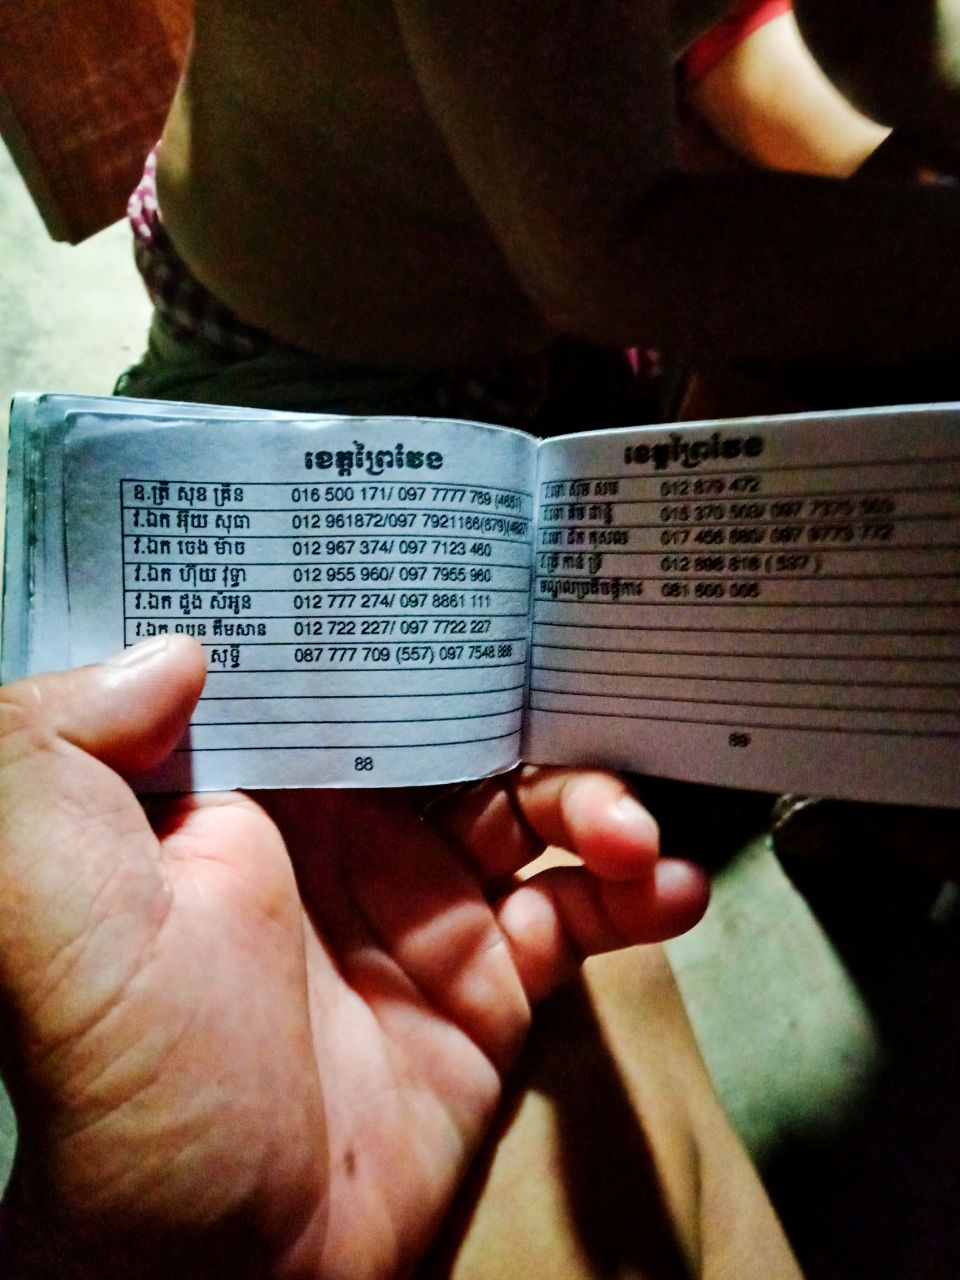 ខេត្តព្រៃវែង
ឧ.ត្រី សុខ គ្រីន 016 500 171/ 097 7777 789 (4651)
វ.ឯក អ៊ុយ សុធា 012 961872/097 7921166(679)
វ.ឯក ចេង ម៉ាច 012 967 374/ 097 7123 460
វ.ឯក ហ៊ុយ វុទ្ធា 012 955 960/ 097 7955 960
វ.ឯក ដួង សំអូន 012 777 274/ 097 8861 111
វ.ឯក ឈុន គឹមសាន 012 722 227/ 097 7722 227
សុទ្ធី 087 777 709 (557) 097 7548 888
88
ខេត្តព្រៃវែង
012 879 472
017 456 880/ 097 9773 772
012 896 818 ( 537 )
មណ្ឌលប្រតិបត្តិការ 081 600 006
89